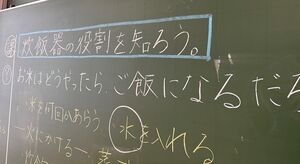 炊飯器の役割を知ろう。
お米はどうやったら、ご飯になるだろ
米を何回かあらう
水を入れる
火にかける